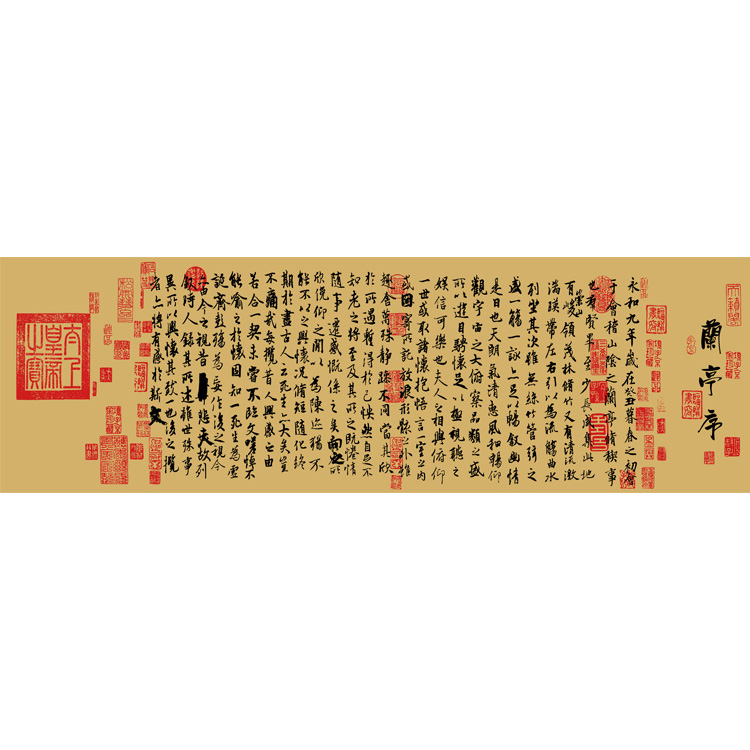 蘭亭序
永和九年歲在癸丑暮春之初會
于會稽山陰之蘭亭脩稧事
也羣賢畢至少長咸集此地
有崇山峻領茂林脩竹又有清流激
湍暎帶左右引以為流觴曲水
列坐其次雖無絲竹管弦之
盛一觴一詠亦足以暢敘幽情
是日也天朗氣清惠風和暢仰
觀宇宙之大俯察品類之盛
所以遊目騁懷足以極視聽之
娛信可樂也夫人之相與俯仰
一世或取諸懷抱悟言一室之內
或因寄所託放浪形骸之外雖
趣舍萬殊靜躁不同當其欣
於所遇暫得於己怏然自足不
知老之將至及其所之既惓情
隨事遷感慨係之矣向之所
欣俛仰之閒以為陳迹猶不
能不以之興懷況脩短隨化終
期於盡古人云死生亦大矣豈
不痛哉每攬昔人興感之由
若合一契未嘗不臨文嗟悼不
能喻之於懷固知一死生為虛
誕齊彭殤為妄作後之視今
亦由今之視昔悲夫故列
敘時人錄其所述雖世殊事
異所以興懷其致一也後之攬
者亦將有感於斯文
太上
皇帝
之寶